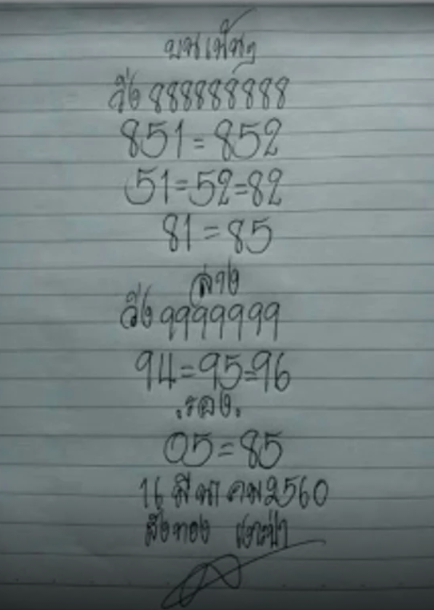 บนเน้นๆ
วิ่ง 888888888
851=852
51=52=82
81=85
ล่าง
วิ่ง 9999999
94=95=96
.รอง.
05=85
16 มีนาคม 2560
สังทอง